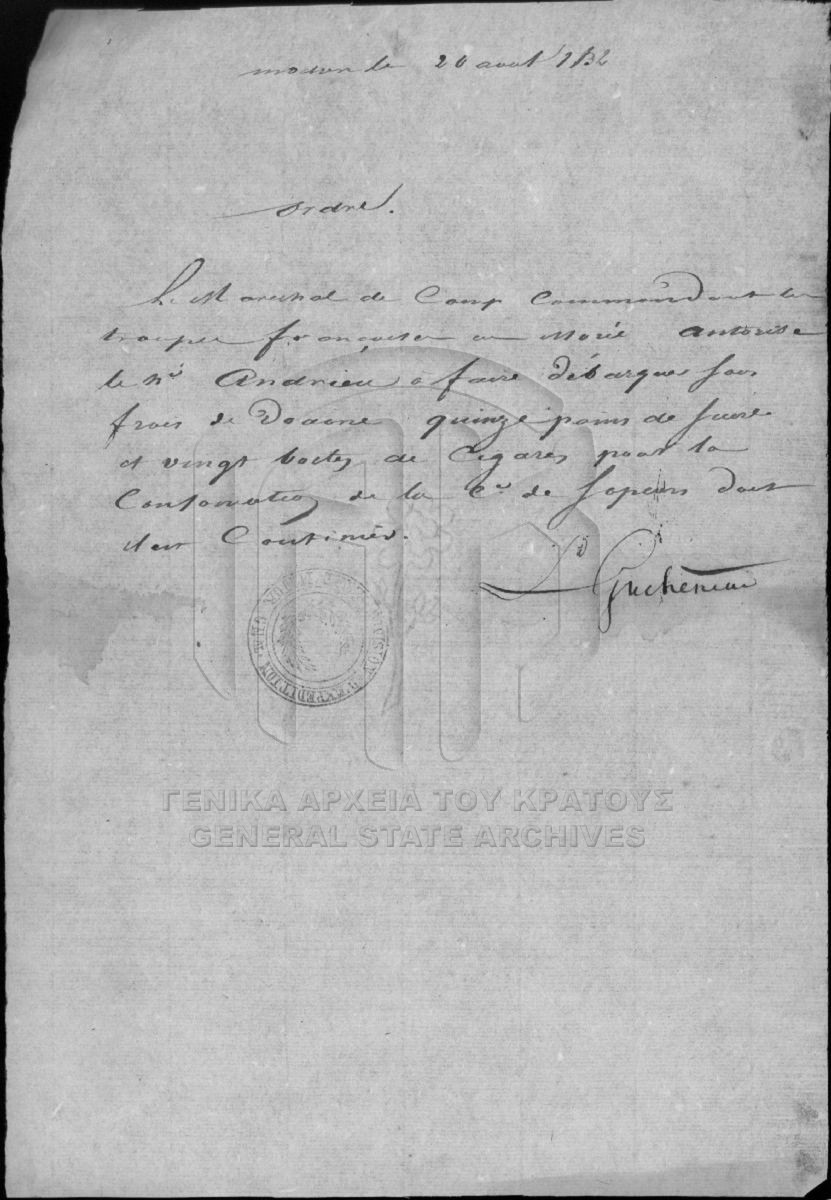 modon le 20 aout 1832
Ordre.
Le Marechal de Camp Commandant les
troupes françaises en Morée autorise
le Sr Andrieu a faire débarquer sans
frais de Doane quinze pains de sucre
et vingt boites de Cigares pour la
Consomation de la Cie de Sapeurs dont
il est Cantinier.
Gueheneuc
D'EXPEDITION
ΓΕΝΙΚΑ ΑΡΧΕΙΑ ΤΟΥ ΚΡΑΤΟΥΣ
GENERAL STATE ARCHIVES